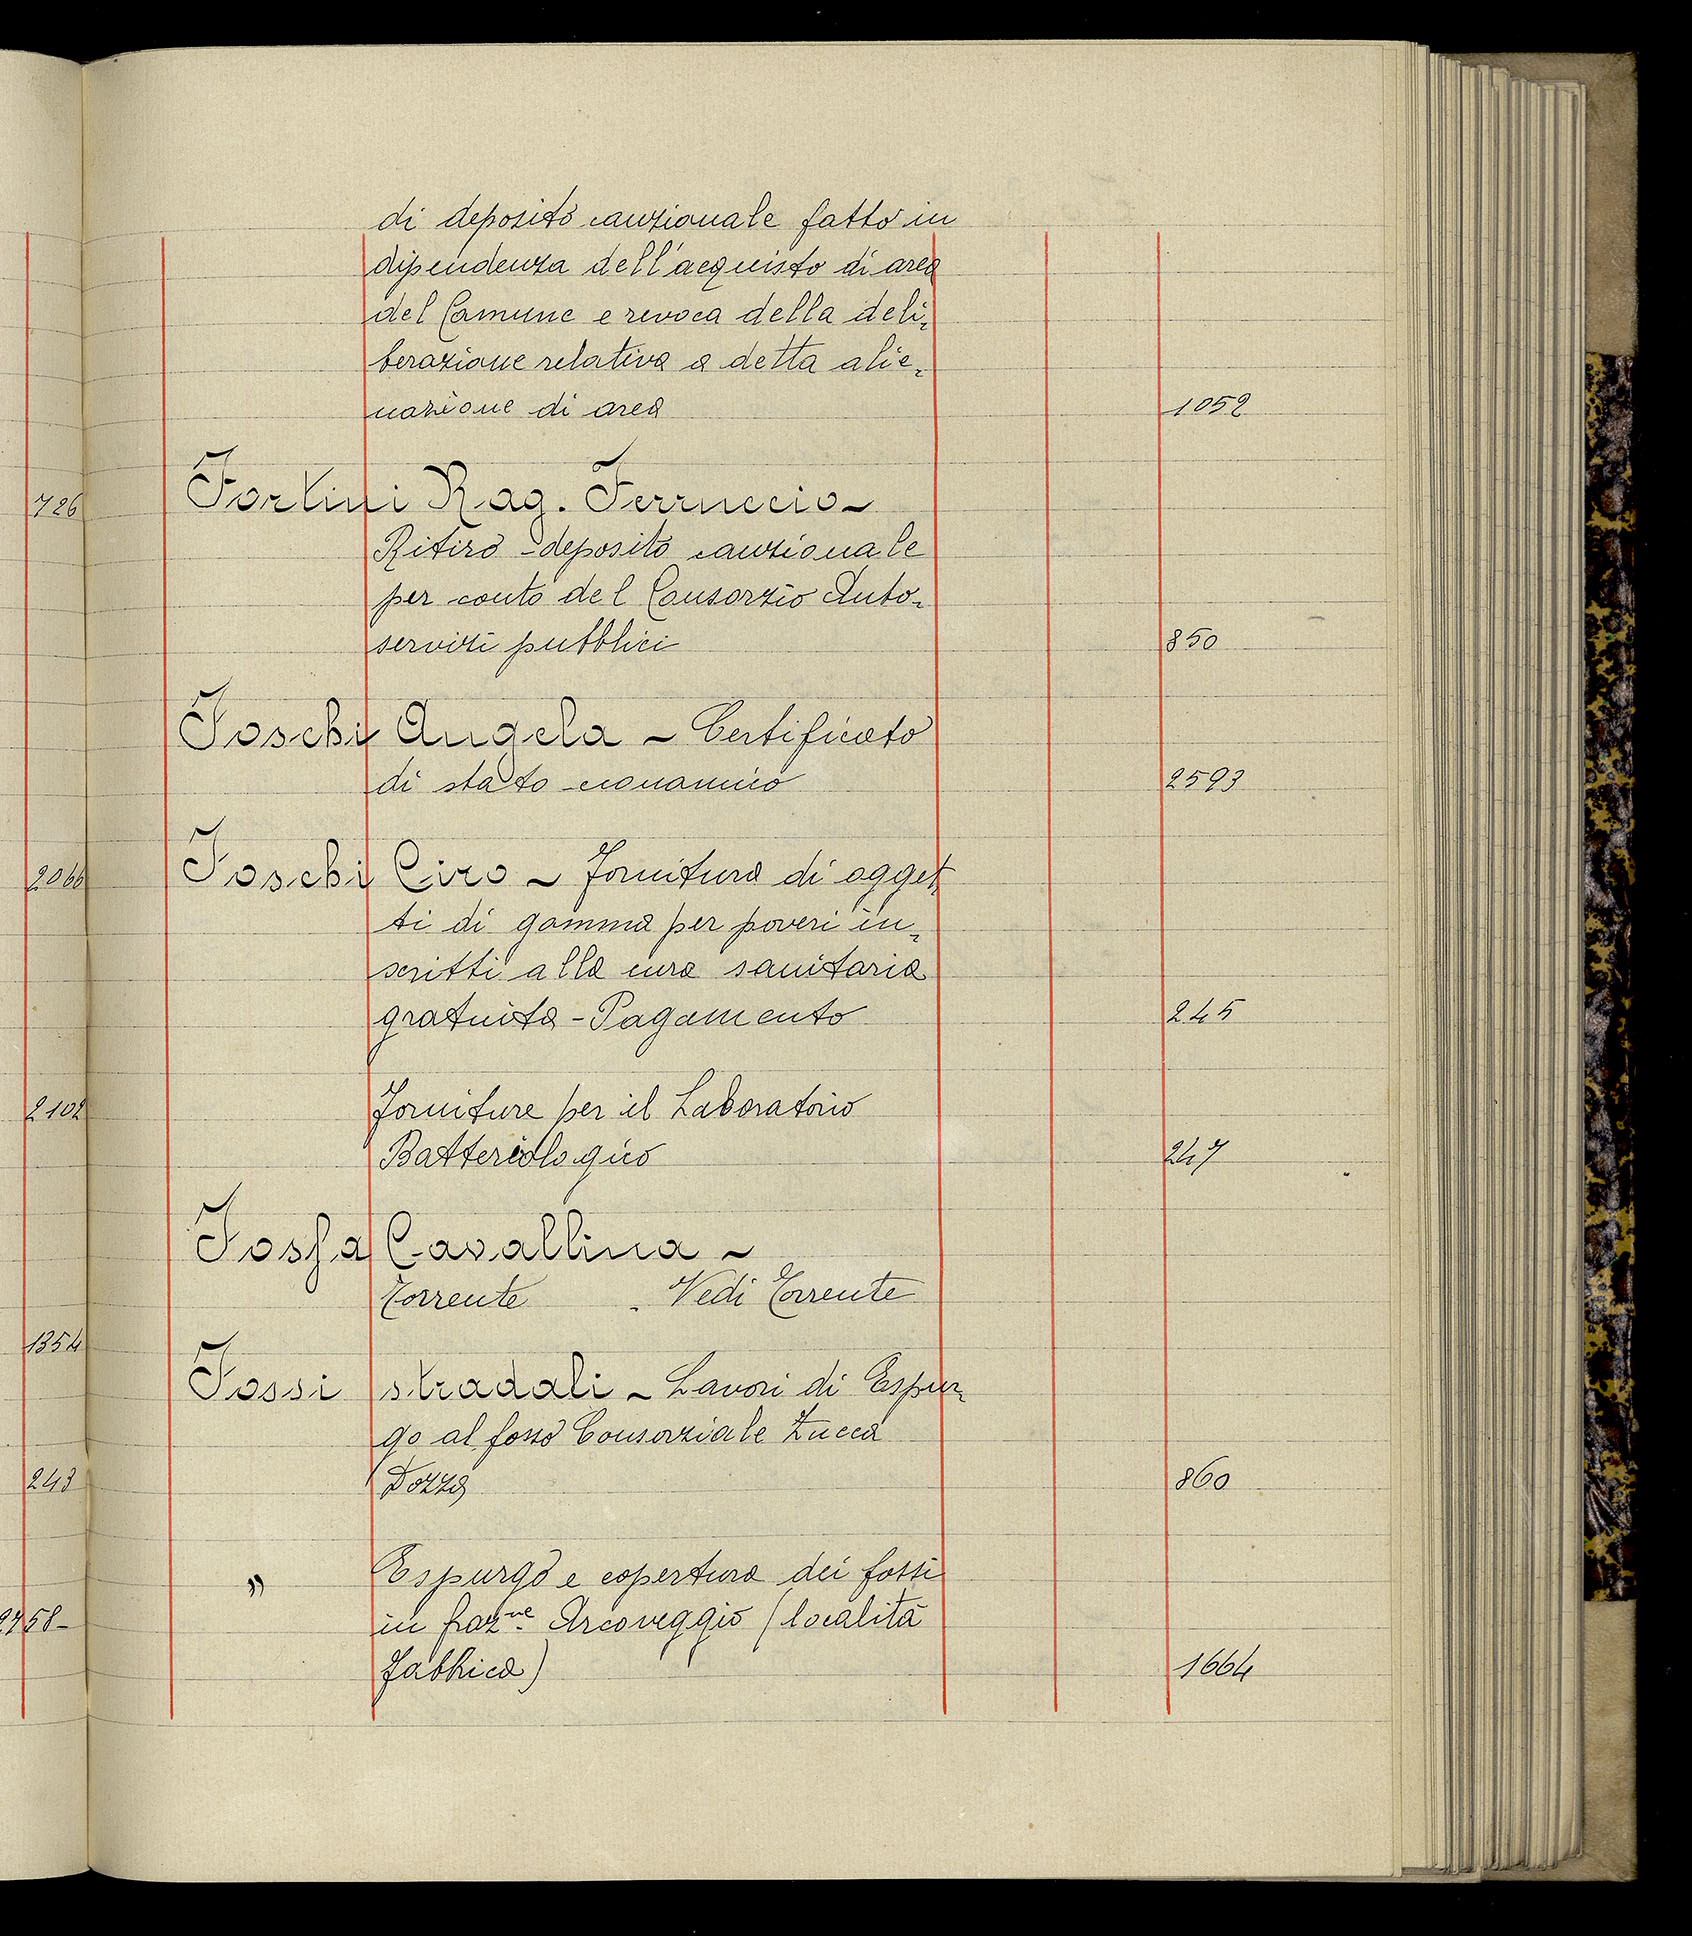 di deposito cauzionale fatto in
dipendenza dell'acquisto di area
del Comune e revoca della deli-
berazione relativa a detta alie-
nazione di area 1052
Fortini Rag. Ferruccio -
Ritiro - deposito cauzionale
per conto del Consorzio Auto-
servizi pubblici 850
Foschi Angela - Certificato
di stato economico 2593
Foschi Ciro - Fornitura di ogget-
ti di gomma per poveri in-
scritti alla cura sanitaria
gratuita - Pagamento 245
Forniture per il Laboratorio
Batteriologico 247
Fossa Cavallina -
Torrente - Vedi Torrente
Fossi stradali - Lavori di Espur-
go al fosso Consorziale Zucca
Dozza 860
" Espurgo e copertura dei fossi
in fraz.ne Arcoveggio (località
Fabbrica) 1664
726
2066
2102
1354
243
2758-